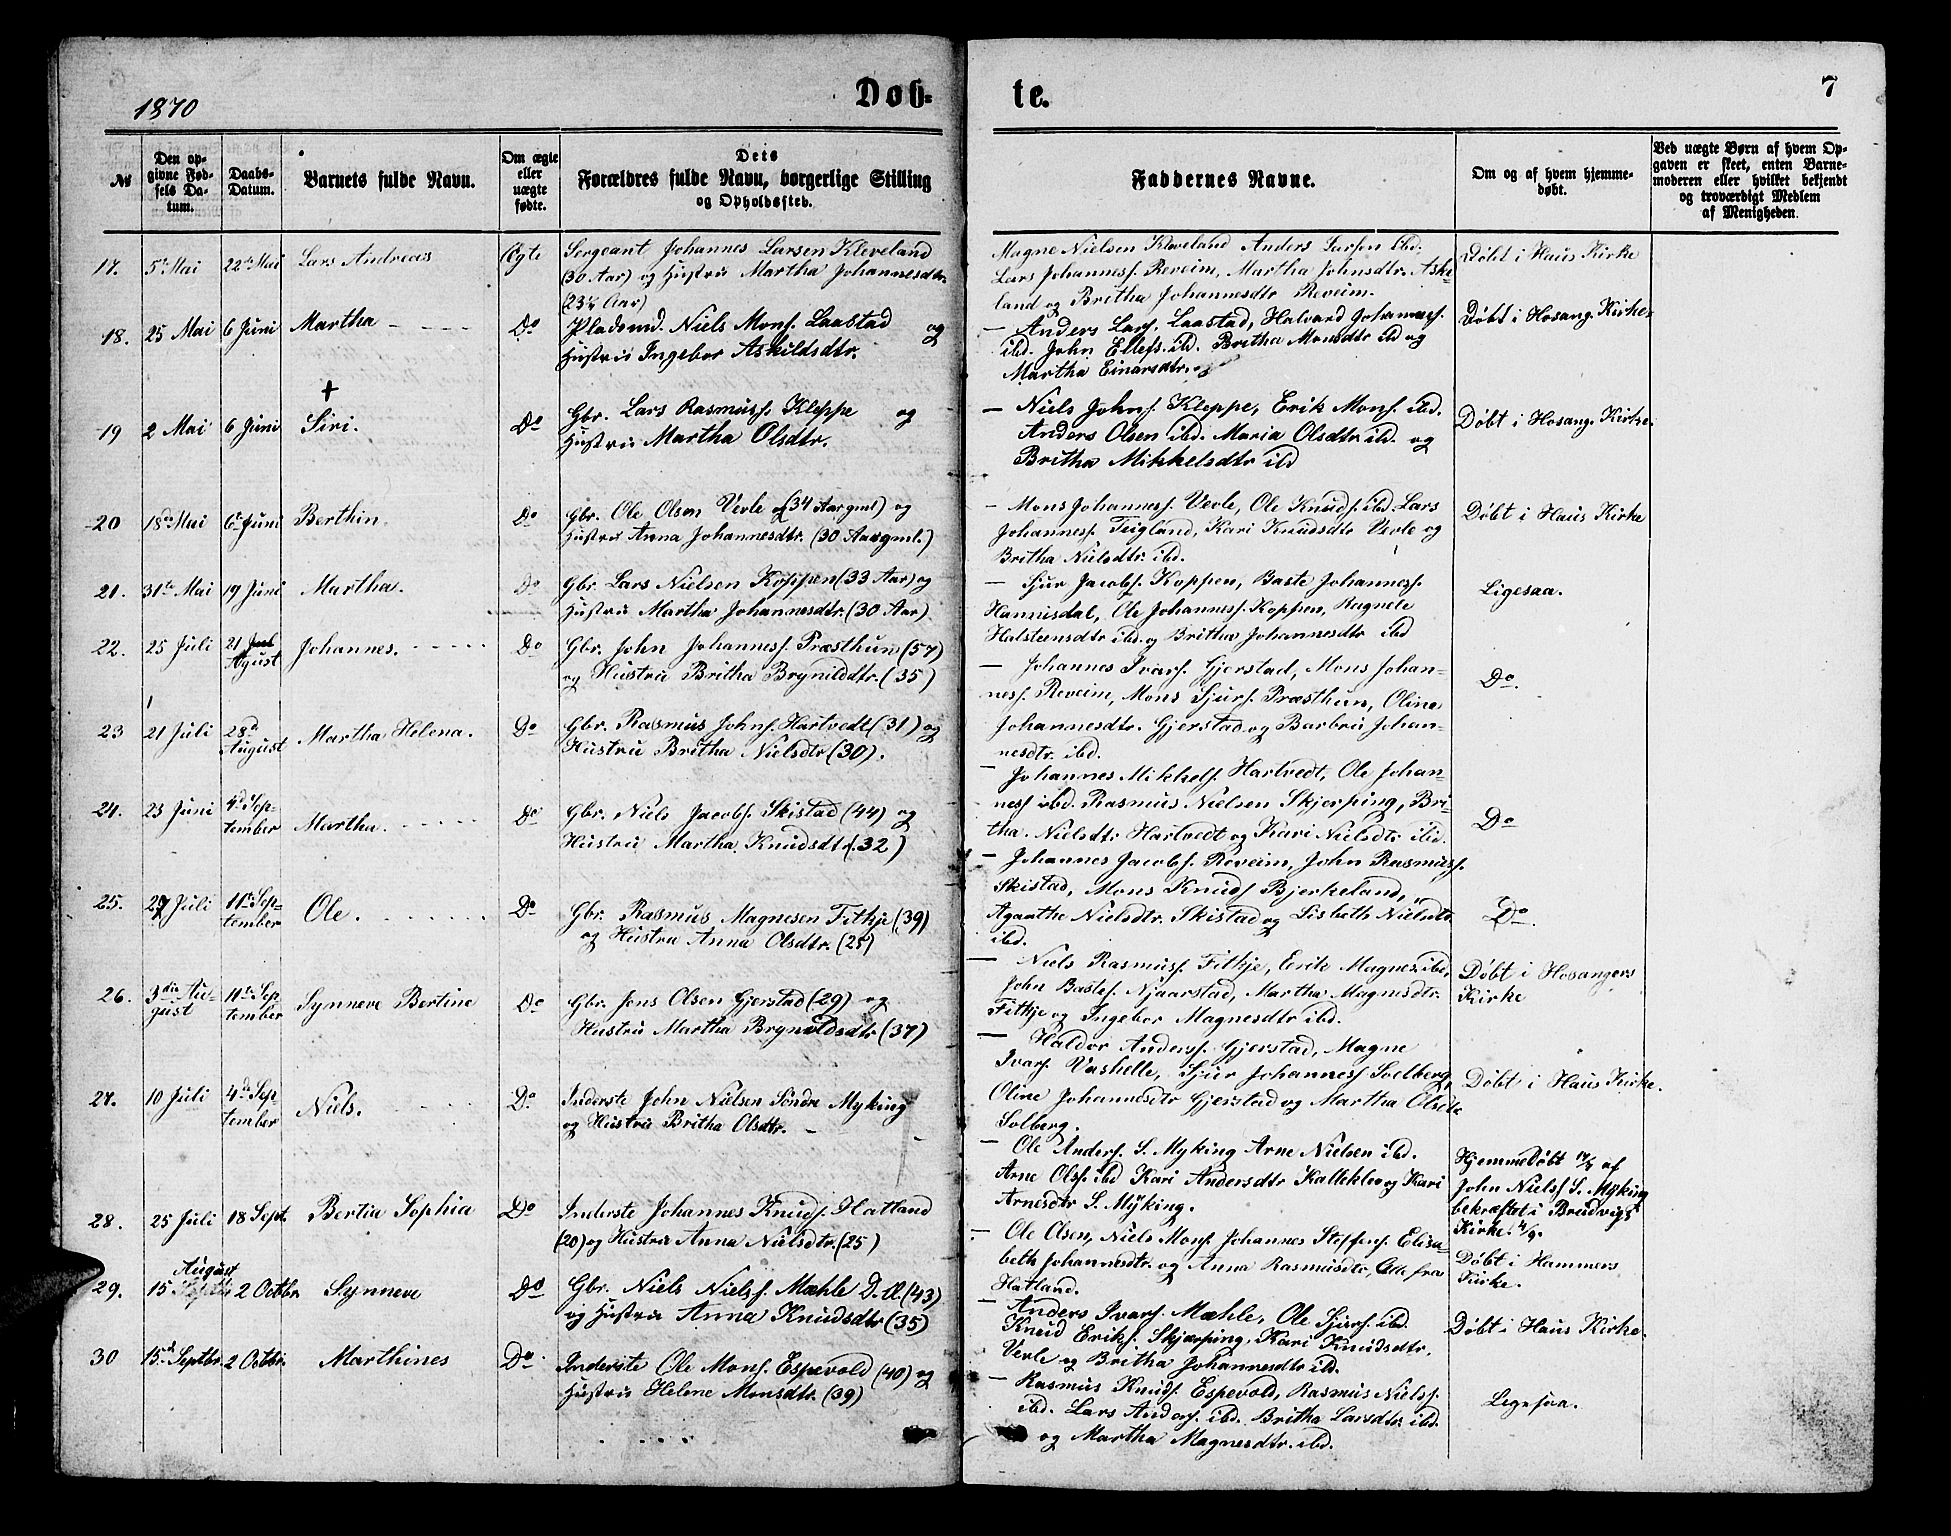 1870
Døb-
te.
7
№
Den op-
givne Fød-
sels Da-
tum.
Daabs-
Datum.
Barnets fulde Navn.
Om ægte
eller
uægte
fødte.
Dets
Forældres fulde Navn, borgerlige Stilling
og Opholdssted.
Faddernes Navne.
Om og af hvem hjemme-
døbt.
Ved uægte Børn af hvem Op-
gaven er skeet, enten Barne-
moderen eller hvilket bekjendt
og troværdigt Medlem
af Menigheden.
17. 5te Mai 22de Mai Lars Andreas Ægte
Sergeant Johannes Larsen Kleveland
(30 Aar) og Hustru Martha Johannesdtr.
(23½ Aar)
Magne Nielsen Kleveland Anders Larsen ibd.
Lars Johannesf. Reveim, Martha Johnsdtr. Aske-
land og Britha Johannesdtr Reveim.
Døbt i Haus Kirke
18. 25 Mai 6 Juni Martha Do
Pladsmd. Niels Monf. Laastad og
Hustru Ingebor Askildsdtr.
— Anders Larf. Laastad, Halvard Johannesf.
ibd. John Ellefs. ibd. Britha Monsdtr ibd og
Martha Einarsdtr.
Døbt i Hosang. Kirke.
+
19 2 Mai 6 Juni Siri. Do
Gbr. Lars Rasmusf. Kleppe og
Hustru Martha Olsdtr.
— Niels Johnf. Kleppe, Erik Monf. ibd.
Anders Olsen ibd. Maria Olsdtr ibd. og
Britha Mikkelsdtr ibd
Døbt i Hosang. Kirke.
20 18de Mai 6te Juni Berthin. Do
Gbr. Ole Olsen Verle (34 Aar gml) og
Hustru Anna Johannesdtr. (30 Aar gml.)
— Mons Johannesf. Verle, Ole Knudf. ibd. Lars
Johannesf. Teigland, Kari Knudsdtr Verle og
Britha Nielsdtr. ibd.
Døbt i Haus Kirke
21. 31te Mai 19 Juni Martha. Do
Gbr. Lars Nielsen Koppen (33 Aar) og
Hustru Martha Johannesdtr. (30 Aar)
— Sjur Jacobf. Koppen, Baste Johannesf.
Hannisdal, Ole Johannesf. Koppen, Ragnele
Halsteensdtr ibd. og Britha Johannesdtr ibd
Ligesaa.
22. 25 Juli 21 August Johannes. Do
Gbr. John Johannesf. Præsthun (57)
og Hustru Britha Brynilddtr. (35)
— Johannes Ivarf. Gjerstad, Mons Johan-
nesf. Reveim, Mons Sjurf. Præsthun, Oline
Johannesdtr. Gjerstad og Barbru Johan-
nesdtr. ibd.
Do.
23 21 Juli 28de August Martha Helena. Do
Gbr. Rasmus Johnf. Hartvedt (31) og
Hustru Britha Nielsdtr (30).
— Johannes Mikkelf. Hartvedt, Ole Johan-
nesf ibd. Rasmus Nielsen Skjerping, Bri-
tha Nielsdtr Hartvedt og Kari Nielsdtr ibd.
Do
24. 23 Juni 4de Sep-
tember Martha. Do
Gbr. Niels Jacobf. Skistad (44) og
Hustru Martha Knudsdtr. (32)
— Johannes Jacobf. Reveim, John Rasmusf.
Skistad, Mons Knudf Bjerkeland,
Agaathe Nielsdtr. Skistad og Lisbeth Nielsdtr.
ibd.
Do.
25. 27 Juli 11te Sep-
tember Ole. Do
Gbr. Rasmus Magnesen Fitkje (39)
og Hustru Anna Olsdtr. (25)
— Niels Rasmusf. Fitkje, Erik Magnes. ibd,
John Bastef. Njaarstad, Martha Magnesdtr.
Fitkje og Ingebor Magnesdtr ibd.
Døbt i Hosangers
Kirke
26. 3die Au-
gust 11te Sep-
tember Synneve Bertine Do
Gbr. Jons Olsen Gjerstad (29) og
Hustru Martha Brynildsdtr (37)
— Haldor Andersf. Gjerstad, Magne
Ivarf. Vashelle, Sjur Johannesf Soelberg,
Oline Johannesdtr Gjerstad og Martha Olsdtr
Solberg.
Døbt i Haus Kirke.
27. 10 Juli 4de Sep-
tember Niels. Do
Inderste John Nielsen Søndre Myking
og Hustru Britha Olsdtr.
— Ole Andersf. S. Myking Arne Nielsen ibd.
Arne Olsf. ibd Kari Andersdtr Kallekleo og Kari
Arnesdtr S. Myking.
Hjemmedøbt af
John Nielsf S. Myking
bekræftet i Bruvigs
Kirke. 4/9.
28. 25 Juli 18 Sept. Bertia Sophia Do
Inderste Johannes Knudf. Hatland
(20) og Hustru Anna Nielsdtr. (25)
— Ole Olsen, Niels Monf. Johannes Steffenf. Elisa-
beth Johannesdtr. og Anna Rasmusdtr, Alle fra
Hatland.
Døbt i Hammers
Kirke.
29. 15 August 2 Octbr. Synneve Do
Gbr. Niels Nielsf. Mæhle D. Æ. (43)
og Hustru Anna Knudsdtr (35)
— Anders Ivarf. Mæhle, Ole Sjurf. ibd.
Knud Erikf. Skjærping, Kari Knudsdtr.
Verle og Britha Johannesdtr ibd.
Døbt i Haus Kirke.
30 15de Septbr. 2 Octbr. Marthines Do
Inderste Ole Monf. Espevold (40) og
Hustru Helene Monsdtr. (39)
— Rasmus Knudf. Espevold, Rasmus Nielsf.
ibd. Lars Andersf. ibd. Britha Larsdtr. ibd.
og Martha Magnesdtr. ibd.
Ligesaa.